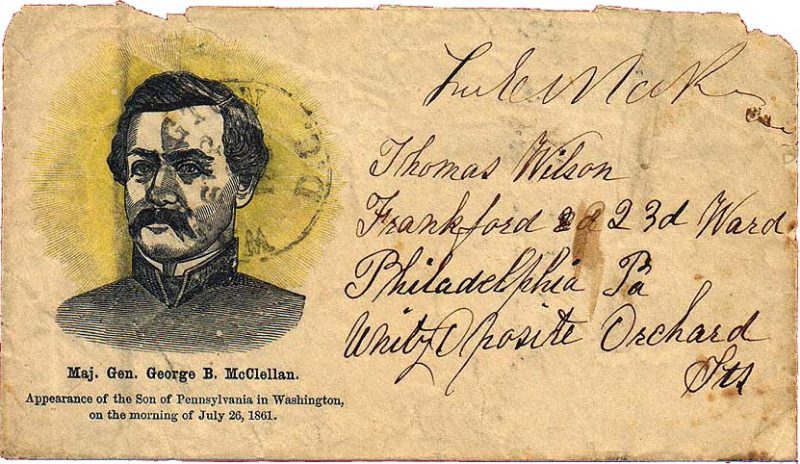 Thomas Wilson
Frankford 23d Ward
Philadelphia Pa
Oposite Orchard
Maj. Gen. George B. McClellan.
Appearance of the Son of Pennsylvania in Washington,
on the morning of July 26, 1861.